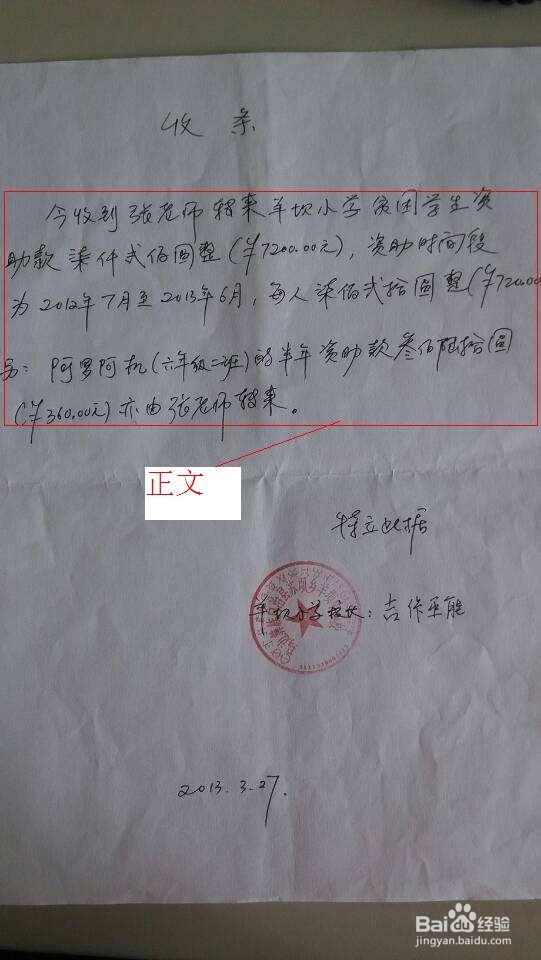 收条
今收到张老师转来羊坝小学贫困学生资
助款柒仟弍佰圆整(¥7200.00元),资助时间段
为2012年7月至2013年6月,每人柒佰弍拾圆整(¥720.00
另:阿罗阿机(六年级二班)的半年资助款叁佰陆拾圆
(¥360.00元)亦由张老师转来。
正文
特立此据
羊坝小学校长:吉作
2013.3.27.
Baidu经验
jingyan.baidu.com